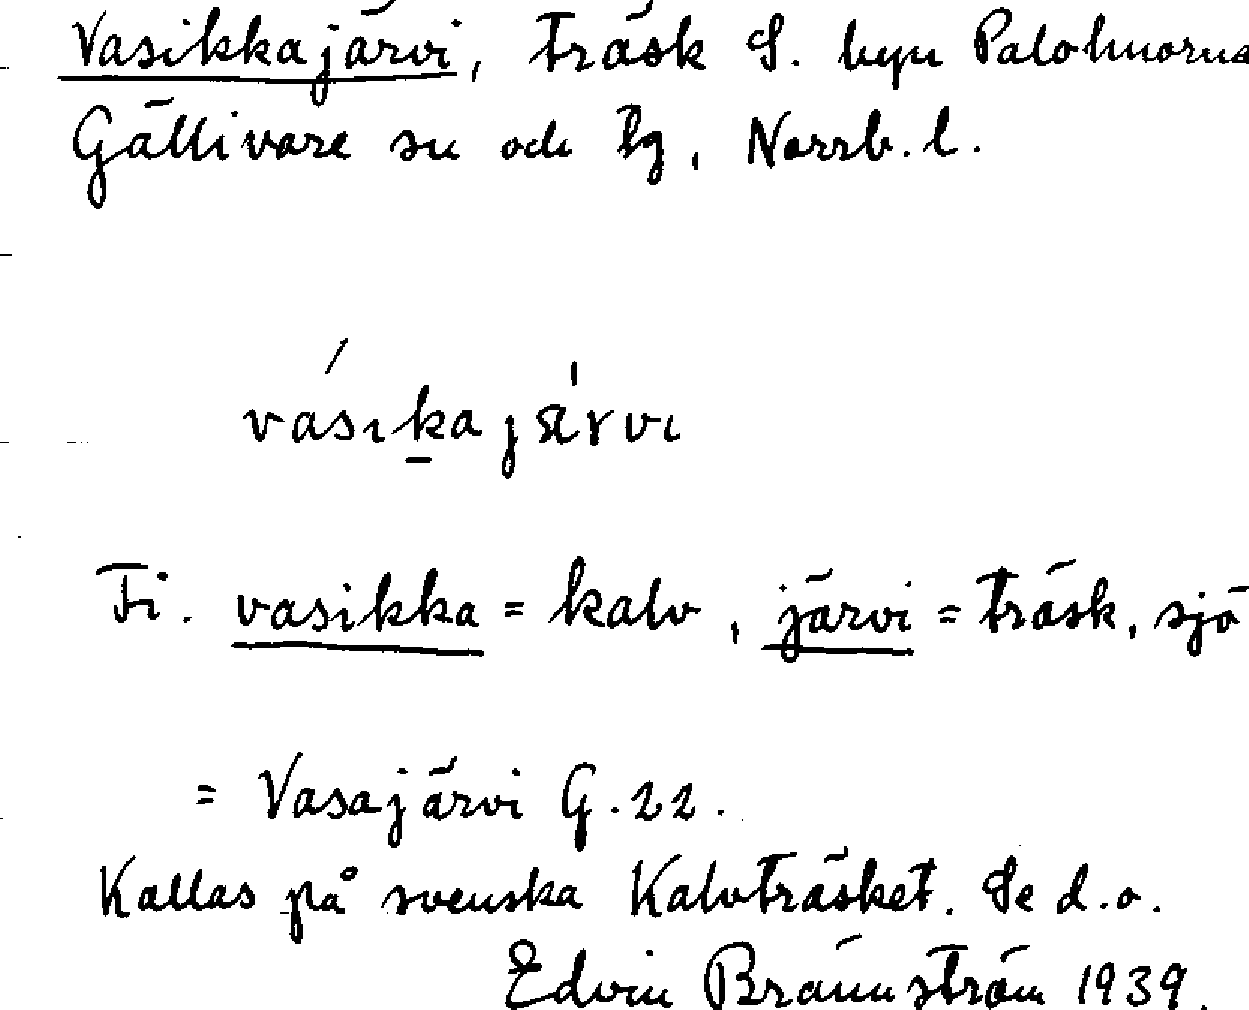 Vasikkajärvi, träsk S. byn Palohuornas
Gällivare sn och lg, Norrb. l.
vásikajärvi
Fi. vasikka = kalv, järvi = träsk, sjö
= Vasajärvi G. 22.
Kallas på svenska Kalvträsket. Se d. o.
Edvin Brännström 1939.